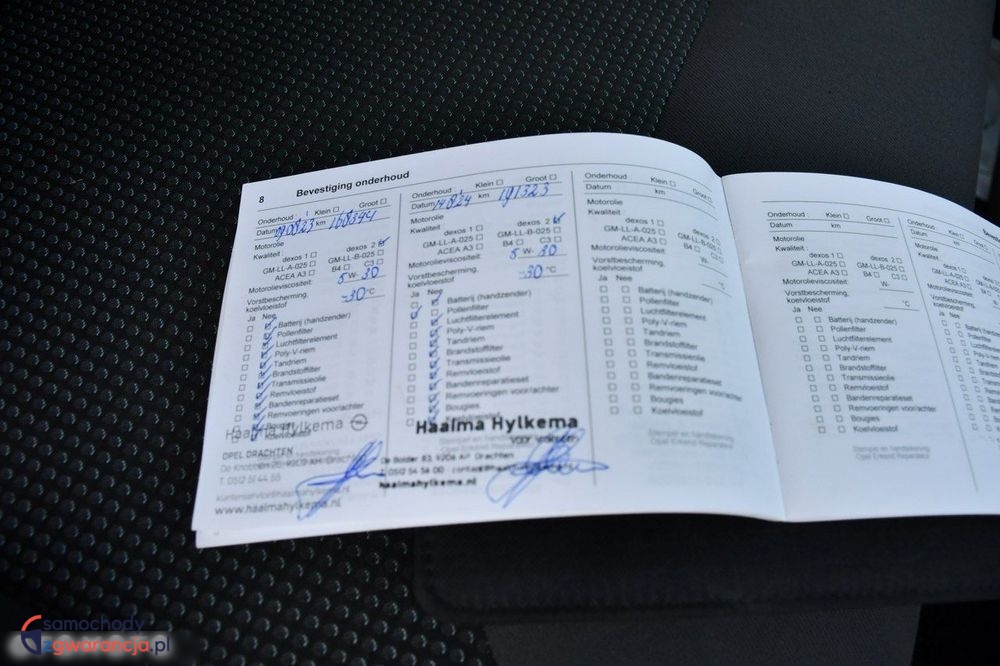 8 Bevestiging onderhoud
Onderhoud Klein ☐ Groot ☐
Datum 010823 km 168394
Motorolie
Kwaliteit dexos 1 ☐ dexos 2 ☑
GM-LL-A-025 ☐ GM-LL-B-025 ☐
ACEA A3 ☐ B4 ☐ C3 ☐
Motorolieviscositeit: 5 W- 30
Vorstbescherming, koelvloeistof -30 °C
Ja Nee
Batterij (handzender)
Pollenfilter
Luchtfilterelement
Poly-V-riem
Tandriem
Brandstoffilter
Transmissieolie
Remvloeistof
Bandenreparatieset
Remvoeringen voor/achter
Bougies
Koelvloeistof
Haalma Hylkema
OPEL DRACHTEN
T. 0512 51 44 55
klantenservice@haalmahylkema.nl
www.haalmahylkema.nl
Onderhoud Klein ☐ Groot ☐
Datum 14824 km 191323
Motorolie
Kwaliteit dexos 1 ☐ dexos 2 ☑
GM-LL-A-025 ☐ GM-LL-B-025 ☐
ACEA A3 ☐ B4 ☐ C3 ☐
Motorolieviscositeit: 5 W- 30
Vorstbescherming, koelvloeistof -30 °C
Ja Nee
Batterij (handzender)
Pollenfilter
Luchtfilterelement
Poly-V-riem
Tandriem
Brandstoffilter
Transmissieolie
Remvloeistof
Bandenreparatieset
Remvoeringen voor/achter
Bougies
Koelvloeistof
Haaima Hylkema
De Bolder 83, 9206 AP Drachten
haaimahylkema.nl
Onderhoud Klein ☐ Groot ☐
Datum km
Motorolie
Kwaliteit dexos 1 ☐ dexos 2 ☐
GM-LL-A-025 ☐ GM-LL-B-025 ☐
ACEA A3 ☐ B4 ☐ C3 ☐
Motorolieviscositeit: W-
Vorstbescherming, koelvloeistof °C
Ja Nee
Batterij (handzender)
Pollenfilter
Luchtfilterelement
Poly-V-riem
Tandriem
Brandstoffilter
Transmissieolie
Remvloeistof
Bandenreparatieset
Remvoeringen voor/achter
Bougies
Koelvloeistof
Stempel en handtekening
Opel Erkend Reparateur
Onderhoud Klein ☐ Groot ☐
Datum km
Motorolie
Kwaliteit dexos 1 ☐ dexos 2 ☐
GM-LL-A-025 ☐ GM-LL-B-025 ☐
ACEA A3 ☐ B4 ☐ C3 ☐
Motorolieviscositeit: W-
Vorstbescherming, koelvloeistof °C
Ja Nee
Batterij (handzender)
Pollenfilter
Luchtfilterelement
Poly-V-riem
Tandriem
Brandstoffilter
Transmissieolie
Remvloeistof
Bandenreparatieset
Remvoeringen voor/achter
Bougies
Koelvloeistof
Stempel en handtekening
Opel Erkend Reparateur
Onderhoud
Datum
Motorolie
Kwaliteit
samochody
zgwarancja.pl